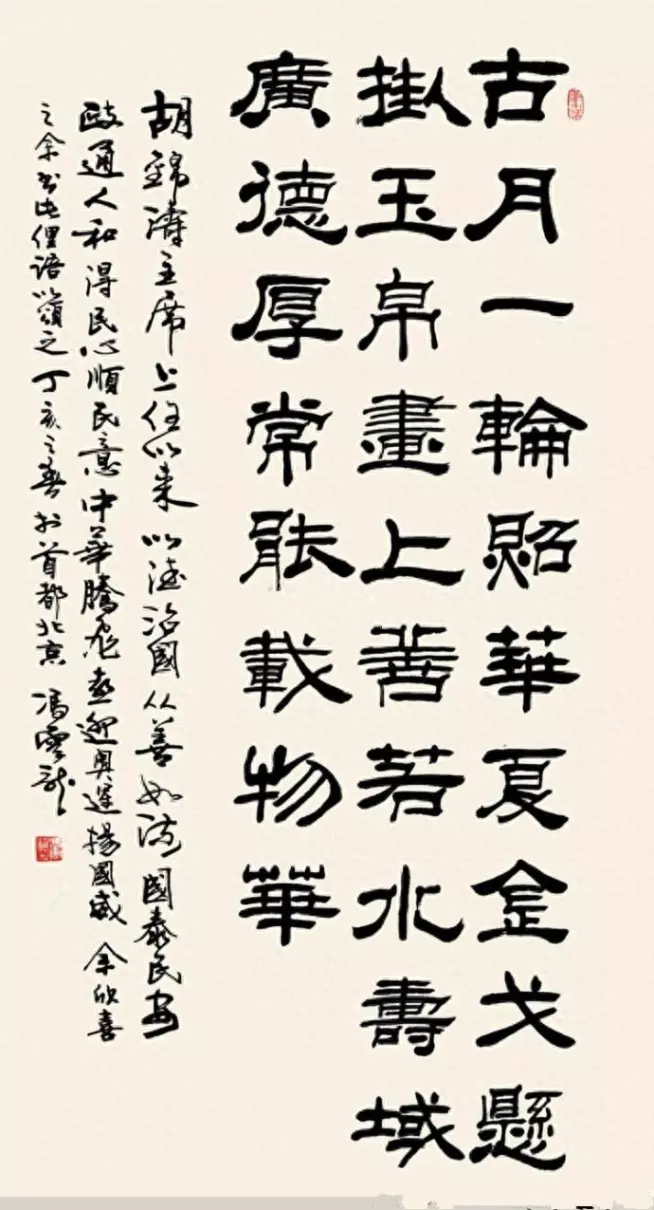 古月一輪照華夏金戈懸
掛玉帛畫上善若水壽域
廣德厚常能載物華
胡錦濤主席上任以來以德治國从善如流國泰民安
政通人和得民心順民意中華騰飛喜迎奧運揚國威余欣喜
之余書此俚語以頌之丁亥之春於首都北京馮雲龍